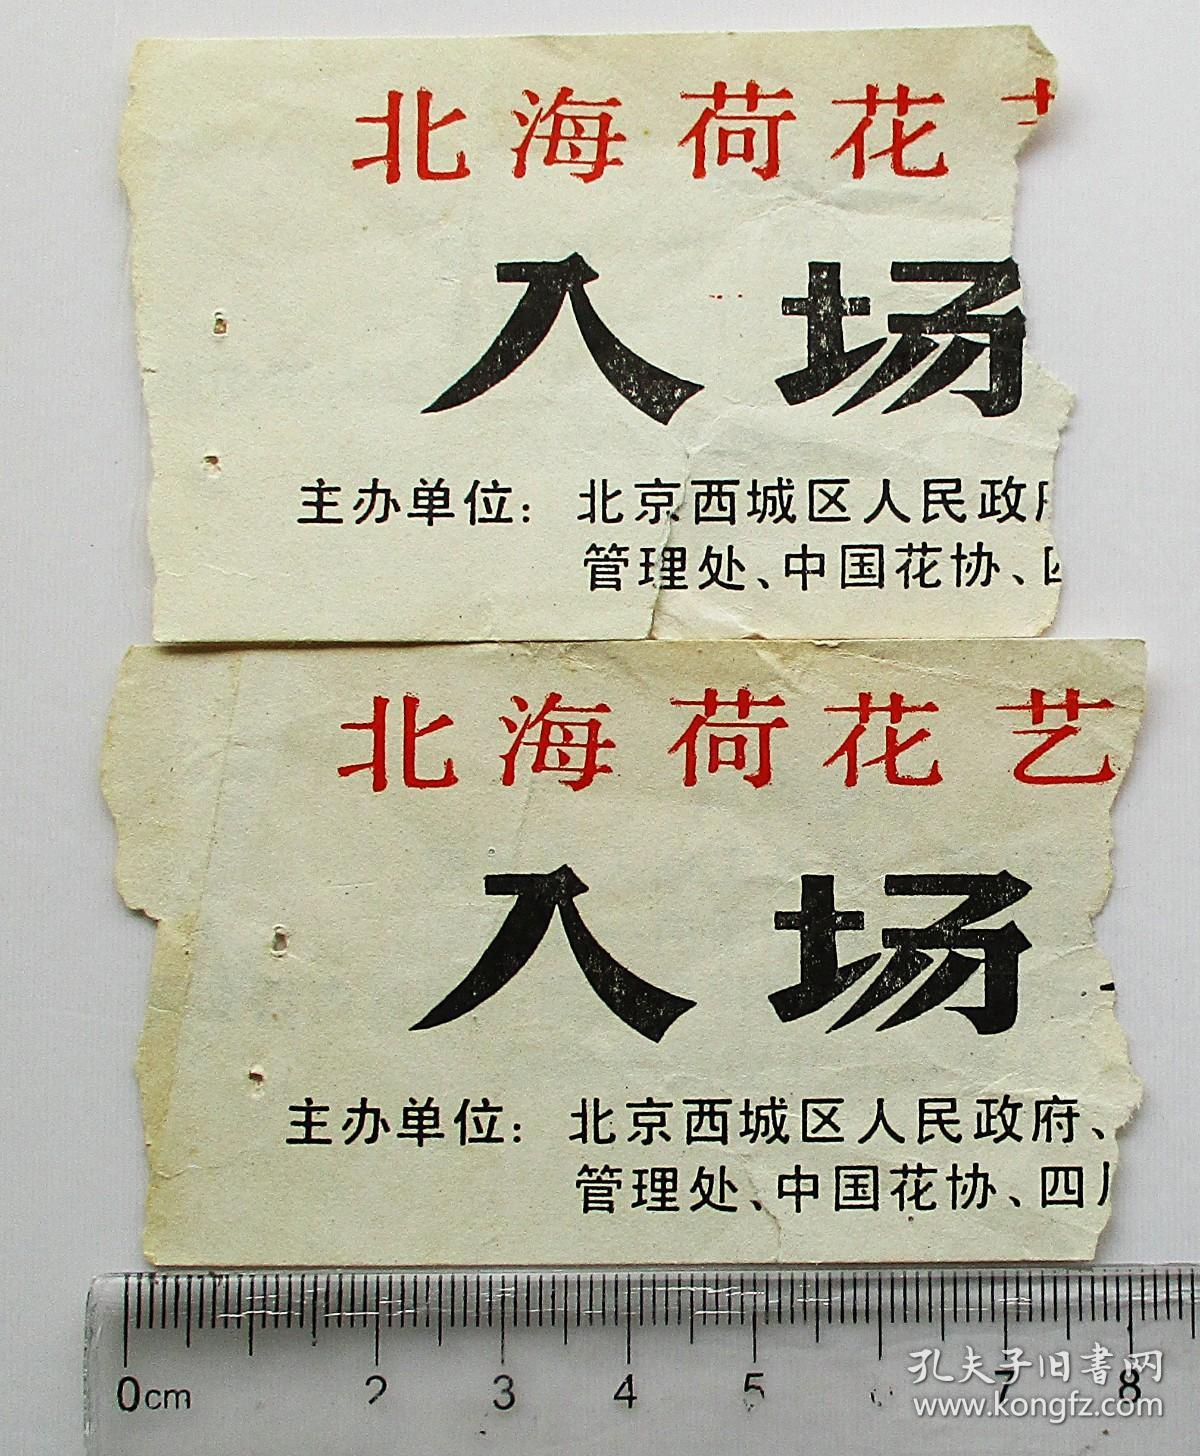 北海荷花
入场
主办单位：北京西城区人民政府
管理处、中国花协、
北海荷花艺
入场
主办单位：北京西城区人民政府、
管理处、中国花协、四川
0cm 2 3 4 5 7 8
孔夫子旧書网
www.kongfz.com